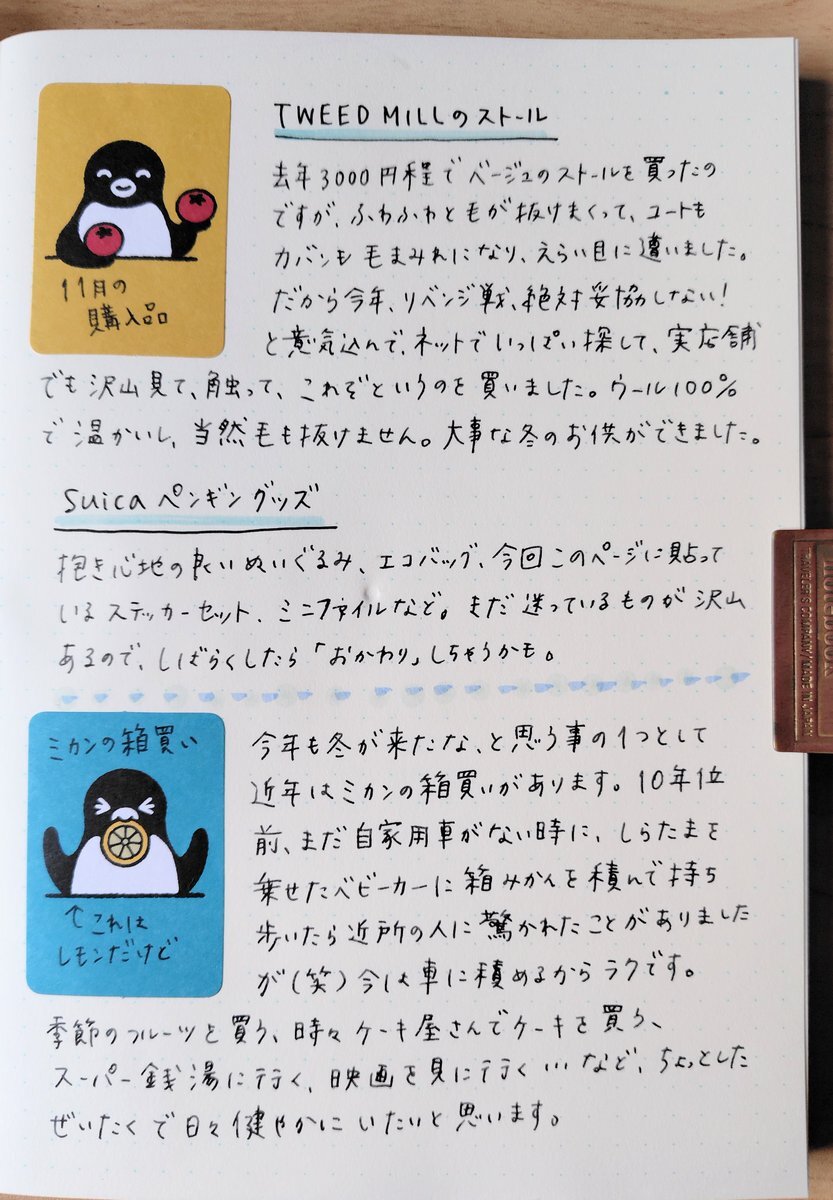 11月の
購入品
TWEED MILLのストール
去年3000円程でベージュのストールを買ったの
ですが、ふわふわと毛が抜けまくって、コートも
カバンも毛まみれになり、えらい目に遭いました。
だから今年、リベンジ戦、絶対妥協しない!
と意気込んで、ネットでいっぱい探して、実店舗
でも沢山見て、触って、これぞというのを買いました。ウール100%
で温かいし、当然毛も抜けません。大事な冬のお供ができました。
Suicaペンギングッズ
抱き心地の良いぬいぐるみ、エコバッグ、今回このページに貼って
いるステッカーセット、ミニファイルなど。まだ迷っているものが沢山
あるので、しばらくしたら「おかわり」しちゃうかも。
ミカンの箱買い
↑これは
レモンだけど
今年も冬が来たな、と思う事の1つとして
近年はミカンの箱買いがあります。10年位
前、まだ自家用車がない時に、しらたまを
乗せたベビーカーに箱みかんを積んで持ち
歩いたら近所の人に驚かれたことがありました
が(笑)今は車に積めるからラクです。
季節のフルーツを買う、時々ケーキ屋さんでケーキを買う、
スーパー銭湯に行く、映画を見に行く…など、ちょっとした
ぜいたくで日々健やかにいたいと思います。
TRAVELER'S COMPANY MADE IN JAPAN